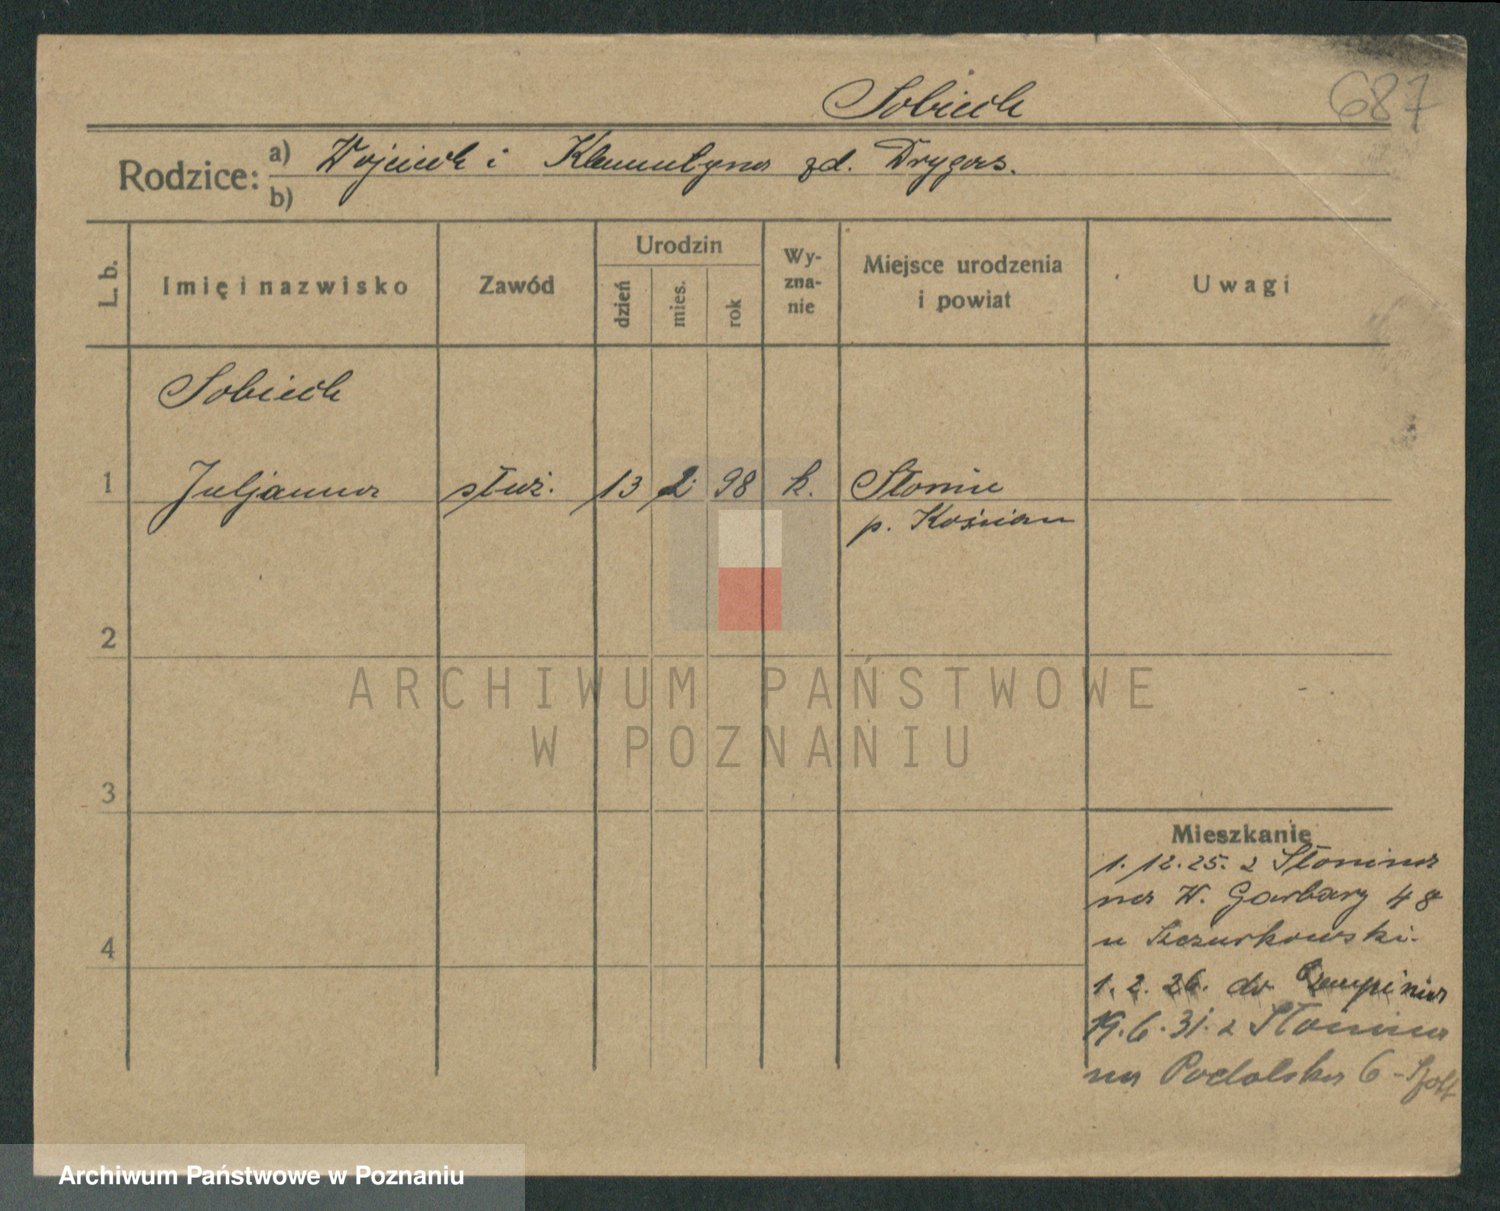 687
Sobiech
Rodzice: a) Wojciech i Klementyna zd. Drygas.
b)
L. b.
Imię i nazwisko
Zawód
Urodzin
dzień
mies.
rok
Wy-
zna-
nie
Miejsce urodzenia
i powiat
Uwagi
Sobiech
1 Juljanna służ. 13 2 98 k. Słonin
p. Kościan
2
ARCHIWUM PAŃSTWOWE
W POZNANIU
3
4
Mieszkanie
1.12.25. z Słonina
na W. Garbary 48
u Szczurkowski.
1.2.26. do Czempinia
19.6.31. z Słonina
na Podolska 6 -
Archiwum Państwowe w Poznaniu